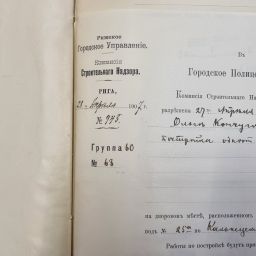 Рижское
Городское Управленіе.
Коммисія
Строительнаго Надзора.
РИГА,
28 Апрѣля 1907 г.
№ 948.
Группа 60
№ 68
Въ
Городское Полиц
Комисія Строительнаго На
разрѣшена 27го Апрѣля
Ольгѣ
постройки
на дворовомъ мѣстѣ, расположенномъ
подъ № 25
Работы по постройкѣ будутъ про